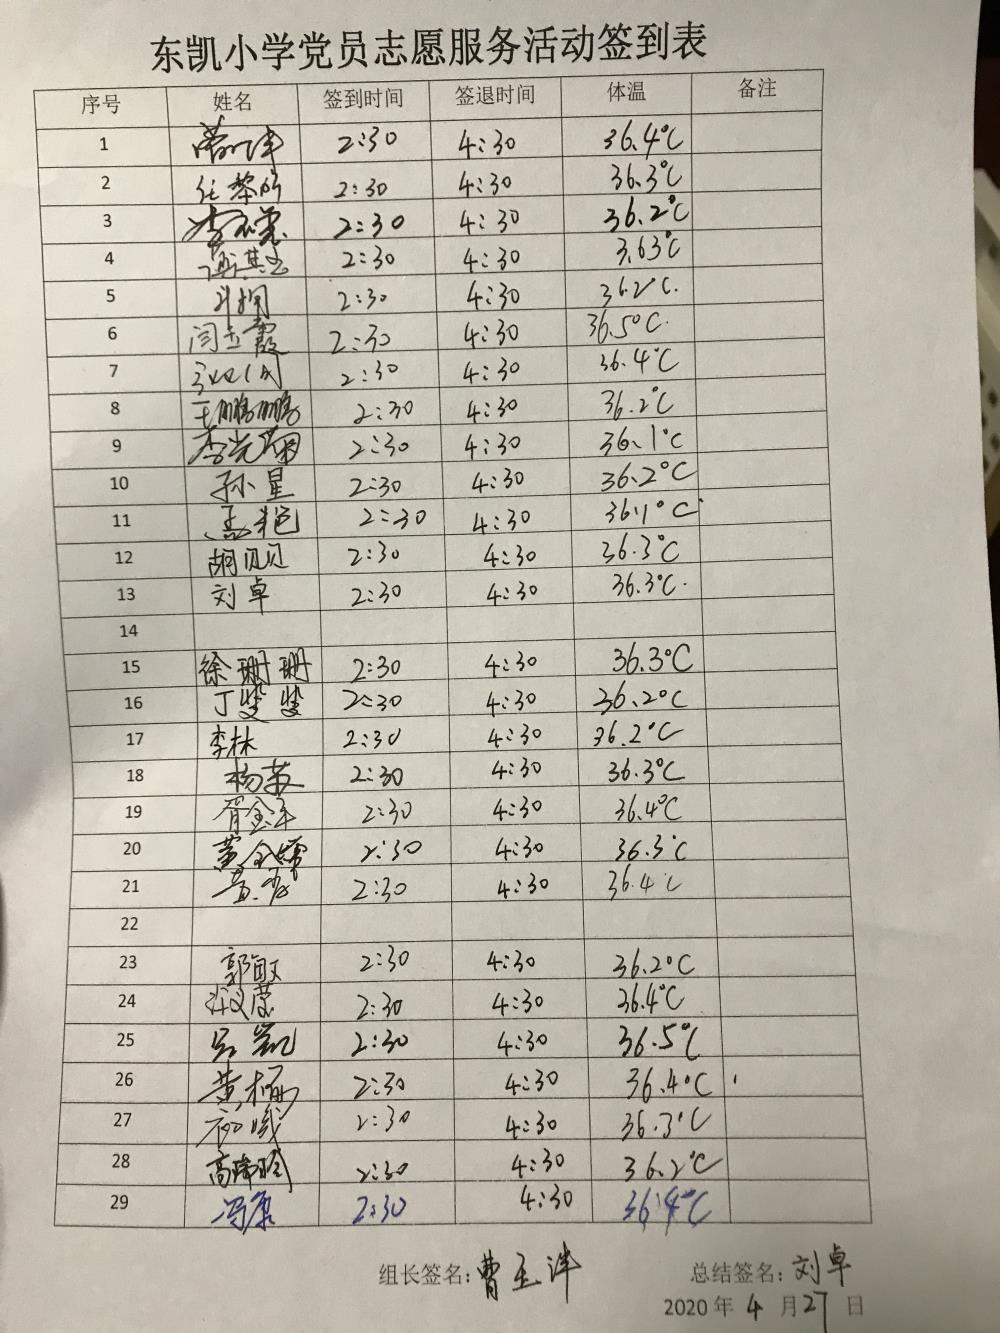 东凯小学党员志愿服务活动签到表
序号 姓名 签到时间 签退时间 体温 备注
1 2:30 4:30 36.4℃
2 任黎明 2:30 4:30 36.3℃
3 2:30 4:30 36.2℃
4 2:30 4:30 3.63℃
5 2:30 4:30 36.2℃.
6 闫玉霞 2:30 4:30 36.5℃.
7 2:30 4:30 36.4℃
8 王鹏鹏 2:30 4:30 36.2℃
9 2:30 4:30 36.1℃
10 孙星 2:30 4:30 36.2℃
11 2:30 4:30 36.1℃
12 胡贝贝 2:30 4:30 36.3℃
13 刘卓 2:30 4:30 36.3℃.
14
15 徐珊珊 2:30 4:30 36.3℃
16 丁斐斐 2:30 4:30 36.2℃
17 李林 2:30 4:30 36.2℃
18 杨苏 2:30 4:30 36.3℃
19 2:30 4:30 36.4℃
20 2:30 4:30 36.3℃
21 2:30 4:30 36.4℃
22
23 郭敏 2:30 4:30 36.2℃
24 2:30 4:30 36.4℃
25 吴凯 2:30 4:30 36.5℃
26 黄楠 2:30 4:30 36.4℃
27 2:30 4:30 36.3℃
28 2:30 4:30 36.2℃
29 冯康 2:30 4:30 36.4℃
组长签名：曹玉洋 总结签名：刘卓
2020 年 4 月 27 日